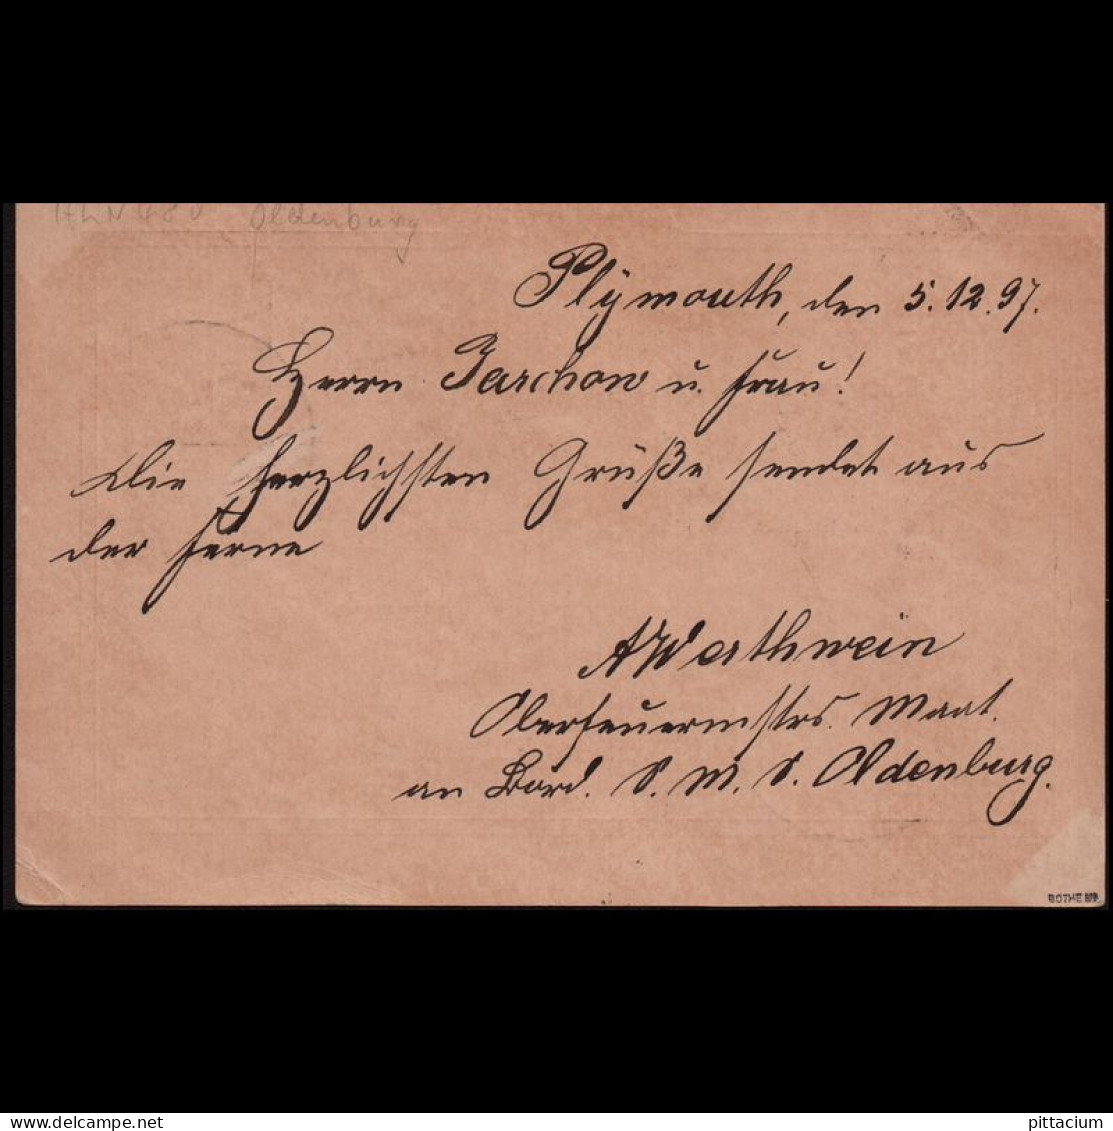 Oldenburg
Plymouth, den 5.12.97.
Herrn Jarchow u. Frau!
Die herzlichsten Grüße sendet aus
der Ferne
AWerthwein
Oberfeuermstrs. Maat.
an Bord. S. M. S. Oldenburg.
BOTHE BPP
delcampe.net
pittacium